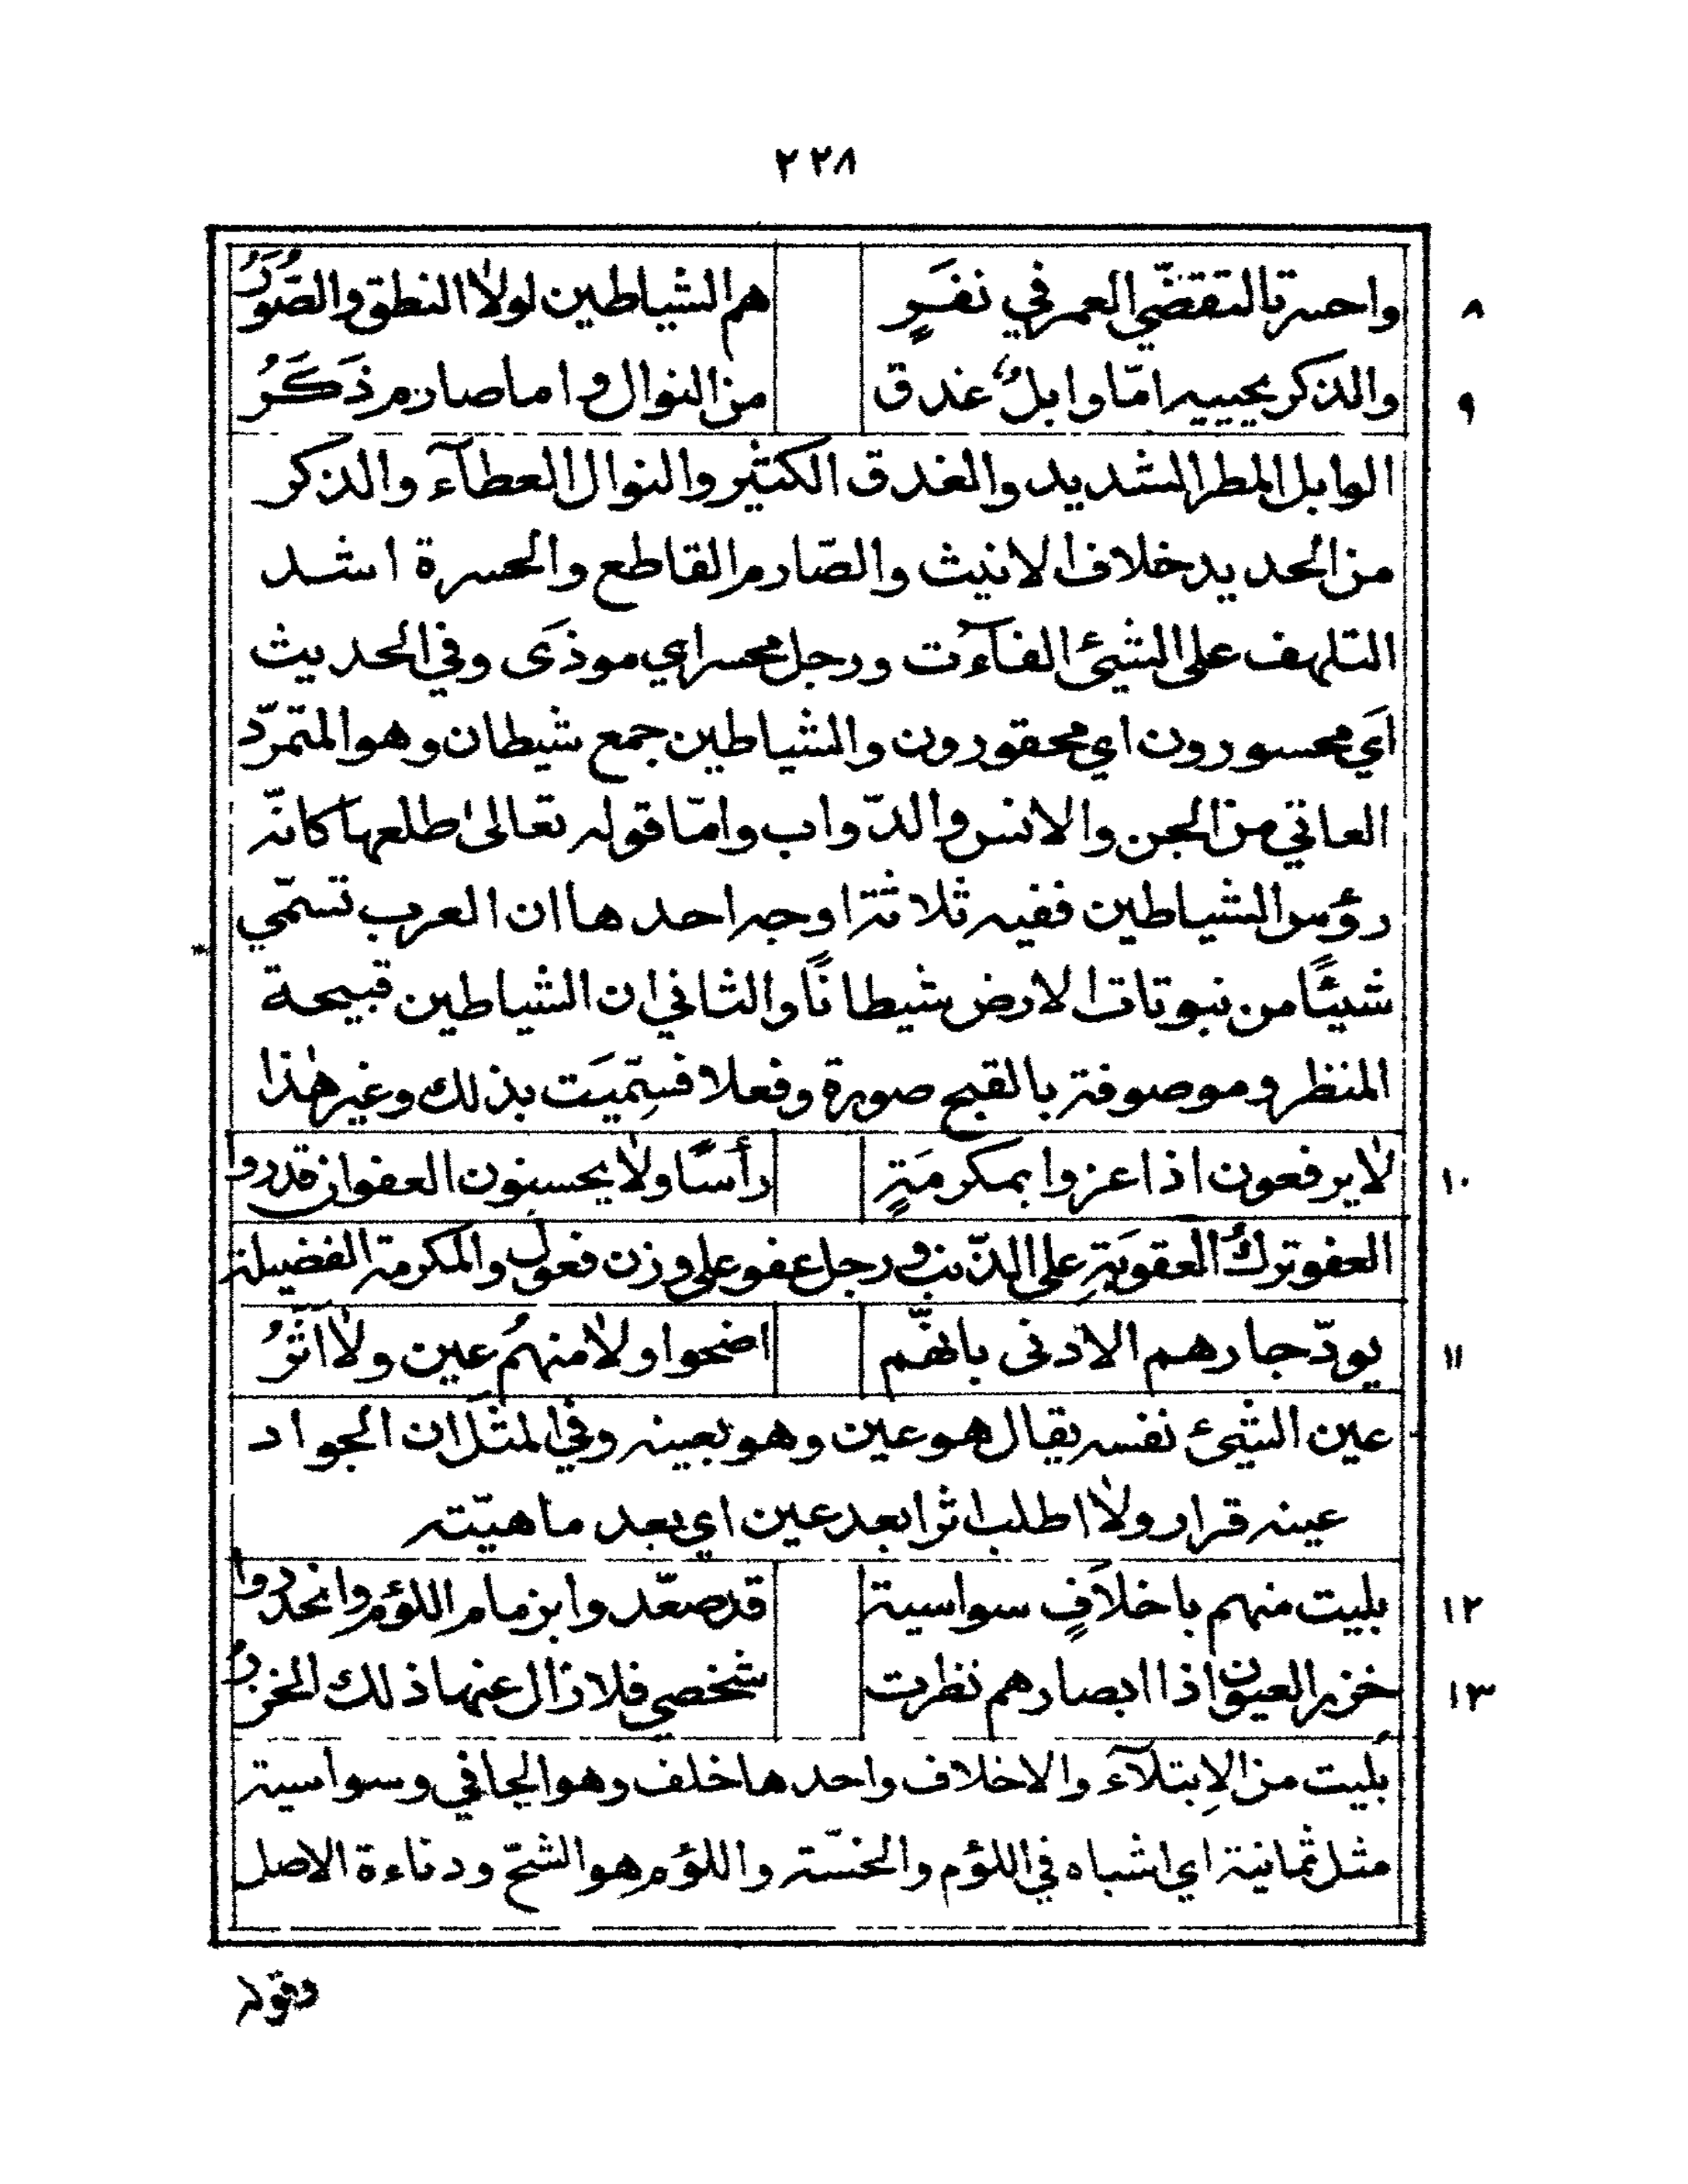 ٢٢٨
٨ واحسرتا لتقضّي العمر في نفَرٍ هم الشياطين لولا النطق والصُّوَرُ
٩ والذكر يحييه امّا وابلٌ غدق من النوال و اما صارم ذَكَرُ
الوابل المطر الشديد والغدق الكثير والنوال العطآء والذكر
من الحديد خلاف الانيث والصّارم القاطع والحسرة اشد
التلهف على الشيئ الفآءت ورجل محسر اي موذَى وفي الحديث
اَي محسورون اي محقورون والشياطين جمع شيطان وهو المتمرّد
العاتي من الجن والانس والدّواب وامّا قوله تعالى طلعها كانّه
رؤس الشياطين ففيه ثلاثة اوجه احدها ان العرب تسمّي
شيئًا من نبوتات الارض شيطانًا والثاني ان الشياطين قبيحة
المنظر وموصوفة بالقبح صورة وفعلا فسِمّيَت بذلك وغير هٰذا
١٠ لا يرفعون اذا عزوا بمكرمَةٍ رأسًا ولا يحسنون العفو ان قدروا
العفو تركُ العقوبَةِ على الذّنب ورجل عفو على وزن فعول والمكرمة الفضيلة
١١ يودّ جارهم الادنى بانّهم اضحوا ولا منهُم عين ولا اثَرُ
عين الشيئ نفسه يقال هو عين وهو بعينه وفي المثل ان الجواد
عينه قرار ولا اطلب اثرا بعد عين اي بعد ماهيّته
١٢ بليت منهم باخلاَفٍ سواسية قد صعّدوا بزمام اللؤم وانحدروا
١٣ خزر العيون اذا ابصارهم نظرت شخصي فلا زال عنها ذلك الخزرُ
بُليت من الاِبتلآء والاخلاف واحدها خلف وهو الجافي وسواسية
مثل ثمانية اي اشباه في اللؤم والخسّة واللؤم هو الشحّ ودناءة الاصل
وقوله